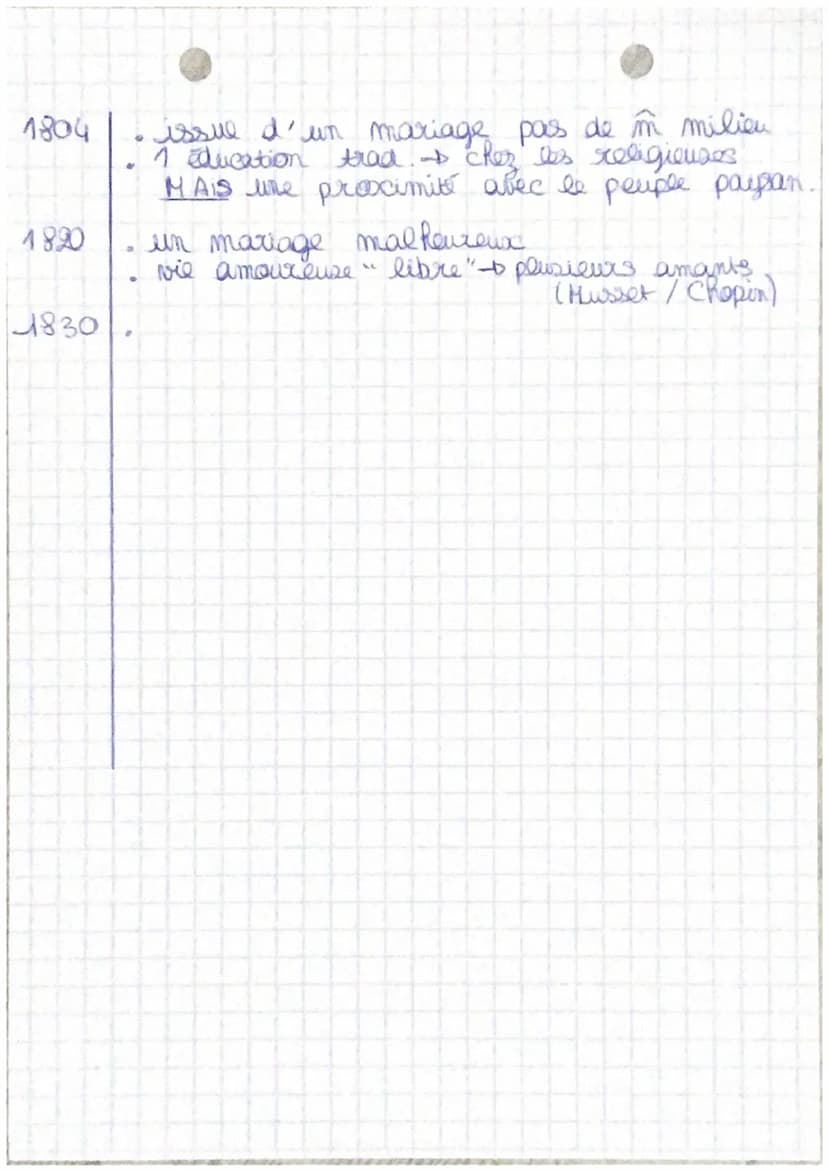 1804 . issue d'un mariage pas de m̂ milieu
. 1 éducation trad. → chez les religieuses
MAIS une proximité avec le peuple paysan.
1820 . un mariage malheureux
. vie amoureuse "libre" → plusieurs amants
(Musset / Chopin)
1830 .